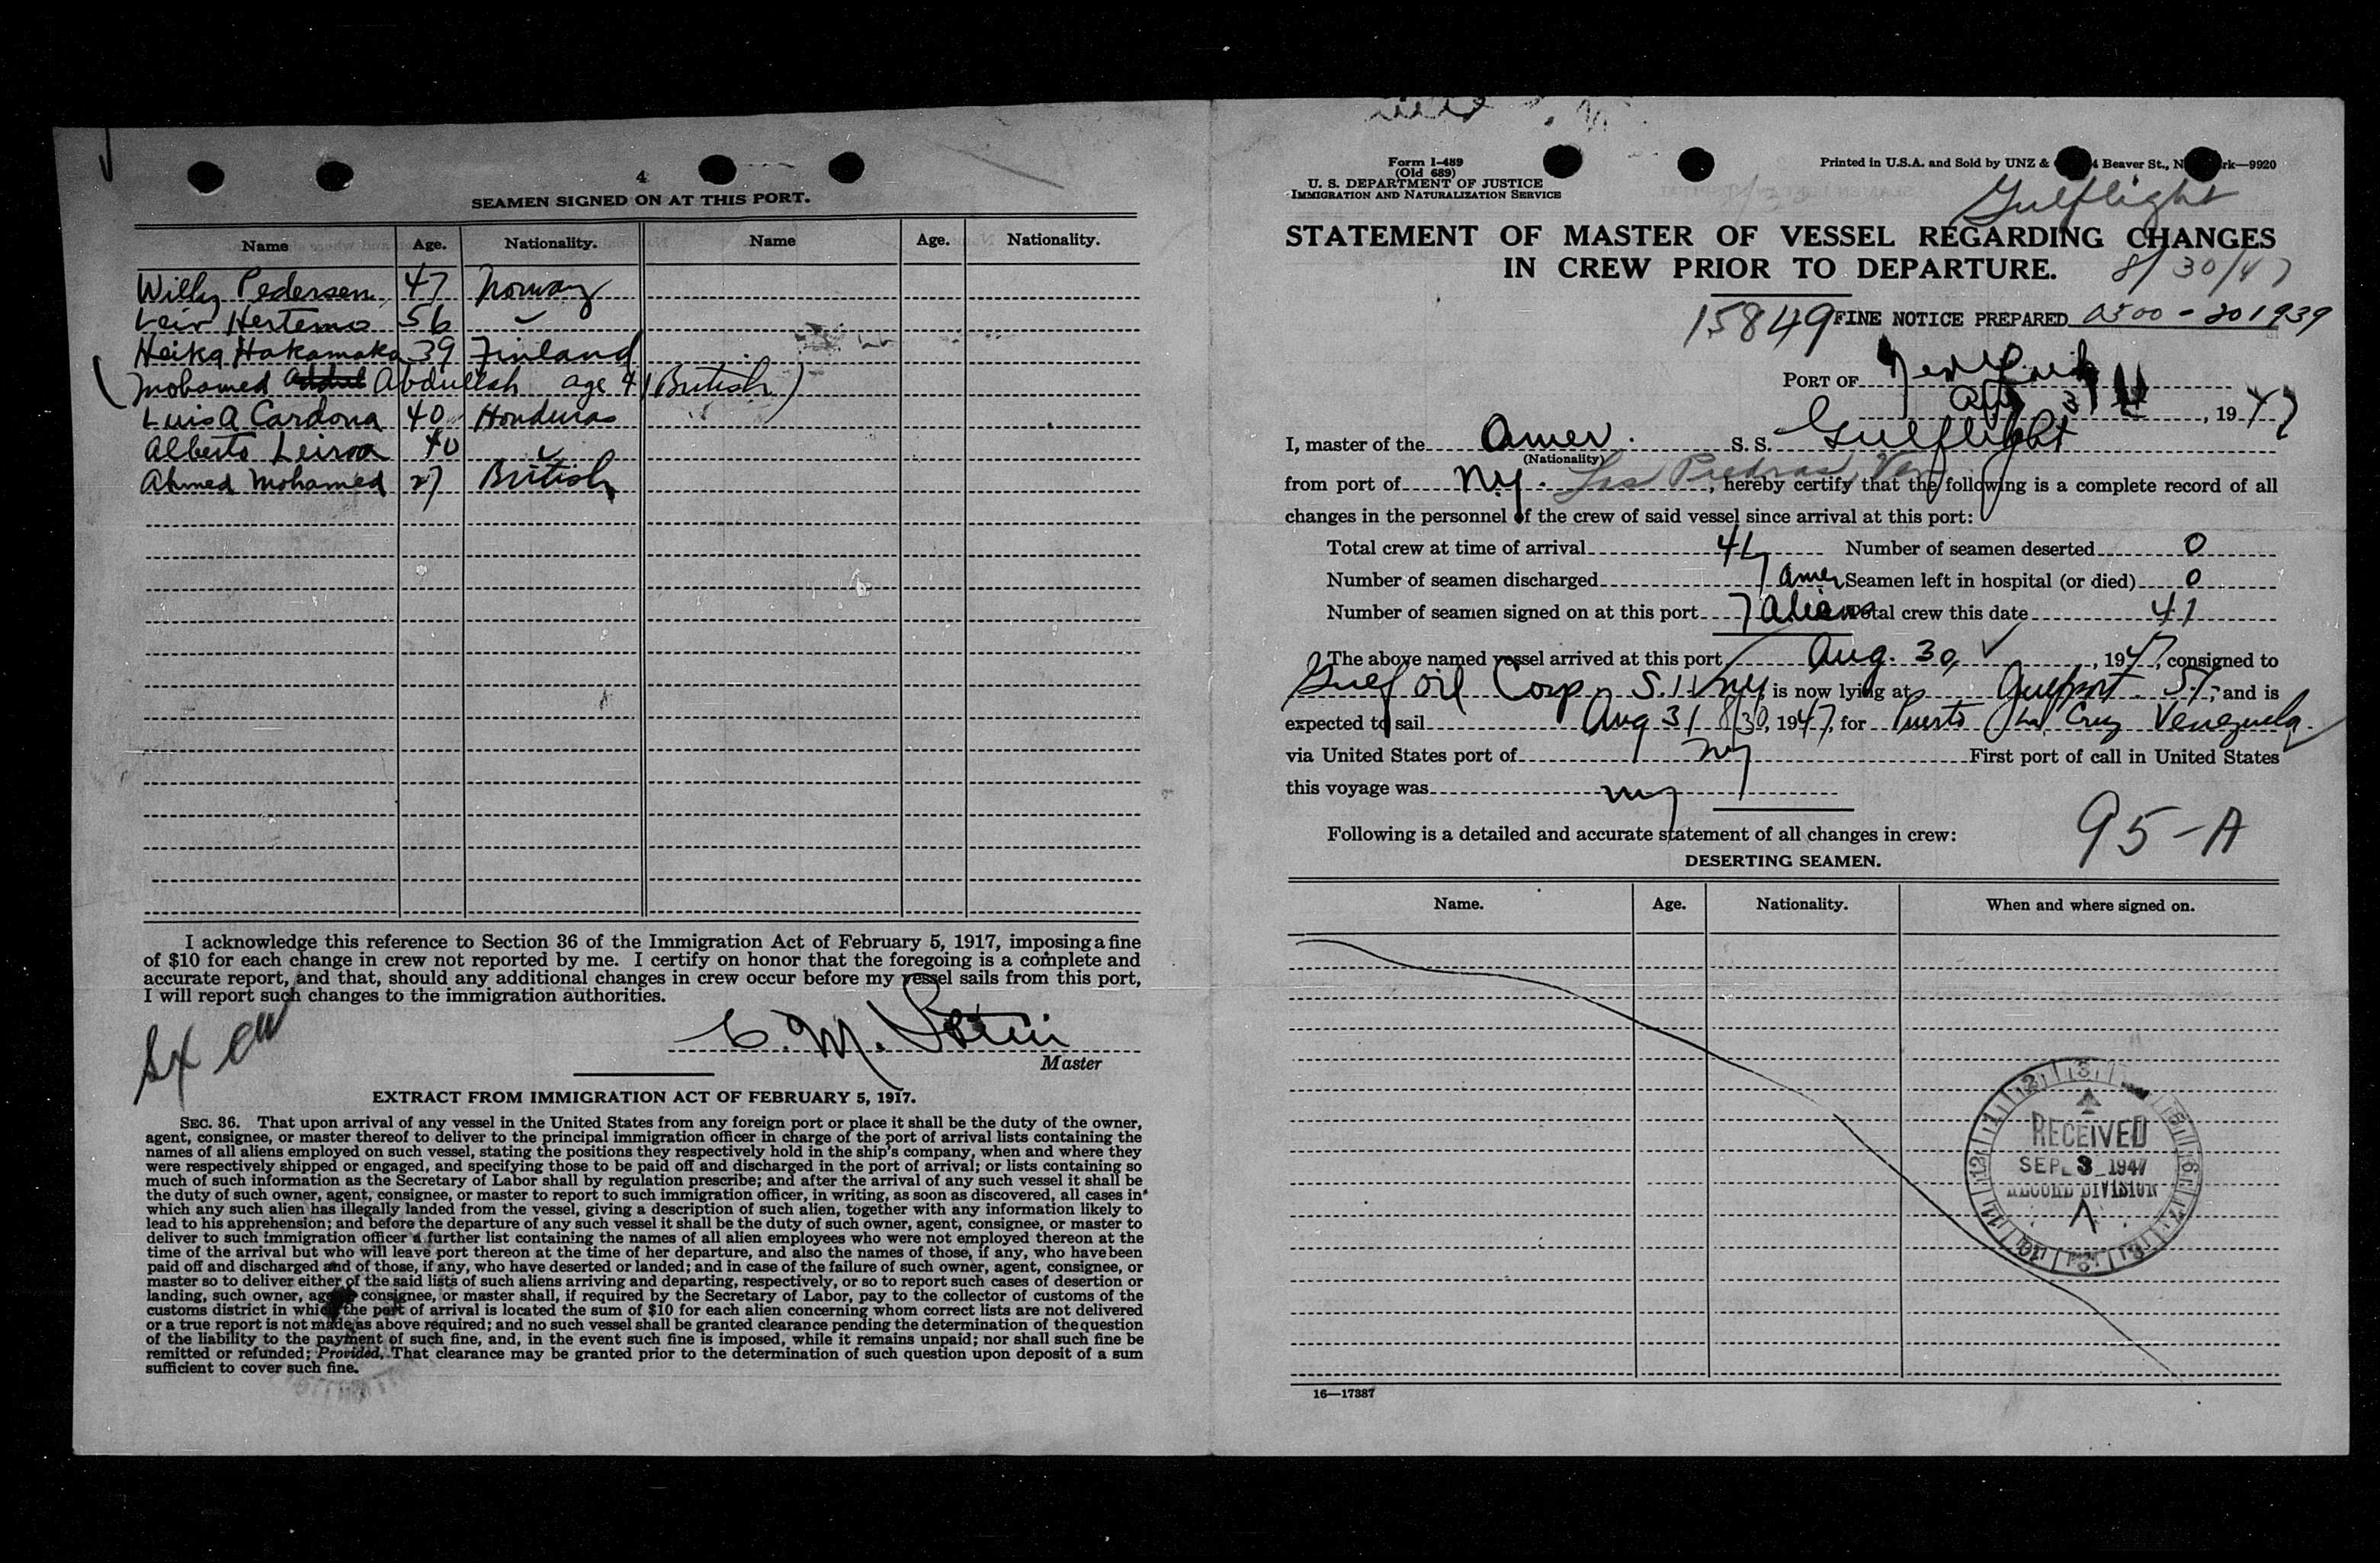 4
SEAMEN SIGNED ON AT THIS PORT.
Name Age. Nationality. Name Age. Nationality.
Willy Pedersen 47 Norway
Leiv Hertemo 56 "
Heika Hakamaka 39 Finland
(Mohamed Abdullah age 41 British)
Luis A Cardona 40 Honduras
Alberto Leiroa 40 "
Ahmed Mohamed 27 British
I acknowledge this reference to Section 36 of the Immigration Act of February 5, 1917, imposing a fine
of $10 for each change in crew not reported by me. I certify on honor that the foregoing is a complete and
accurate report, and that, should any additional changes in crew occur before my vessel sails from this port,
I will report such changes to the immigration authorities.
C. M.
Master
EXTRACT FROM IMMIGRATION ACT OF FEBRUARY 5, 1917.
SEC. 36. That upon arrival of any vessel in the United States from any foreign port or place it shall be the duty of the owner,
agent, consignee, or master thereof to deliver to the principal immigration officer in charge of the port of arrival lists containing the
names of all aliens employed on such vessel, stating the positions they respectively hold in the ship's company, when and where they
were respectively shipped or engaged, and specifying those to be paid off and discharged in the port of arrival; or lists containing so
much of such information as the Secretary of Labor shall by regulation prescribe; and after the arrival of any such vessel it shall be
the duty of such owner, agent, consignee, or master to report to such immigration officer, in writing, as soon as discovered, all cases in
which any such alien has illegally landed from the vessel, giving a description of such alien, together with any information likely to
lead to his apprehension; and before the departure of any such vessel it shall be the duty of such owner, agent, consignee, or master to
deliver to such immigration officer a further list containing the names of all alien employees who were not employed thereon at the
time of the arrival but who will leave port thereon at the time of her departure, and also the names of those, if any, who have been
paid off and discharged and of those, if any, who have deserted or landed; and in case of the failure of such owner, agent, consignee, or
master so to deliver either of the said lists of such aliens arriving and departing, respectively, or so to report such cases of desertion or
landing, such owner, agent, consignee, or master shall, if required by the Secretary of Labor, pay to the collector of customs of the
customs district in which the port of arrival is located the sum of $10 for each alien concerning whom correct lists are not delivered
or a true report is not made as above required; and no such vessel shall be granted clearance pending the determination of the question
of the liability to the payment of such fine, and, in the event such fine is imposed, while it remains unpaid; nor shall such fine be
remitted or refunded; Provided, That clearance may be granted prior to the determination of such question upon deposit of a sum
sufficient to cover such fine.
Form I-489
(Old 689)
U. S. DEPARTMENT OF JUSTICE
IMMIGRATION AND NATURALIZATION SERVICE
Printed in U.S.A. and Sold by UNZ & Beaver St., N rk—9920
Gulflight
STATEMENT OF MASTER OF VESSEL REGARDING CHANGES
IN CREW PRIOR TO DEPARTURE.
8/30/47
15849 FINE NOTICE PREPARED 0300-201939
PORT OF New York
Aug 31, 1947
I, master of the Amer. S. S. Gulflight
(Nationality)
from port of N.Y. Las Piedras, Ven, hereby certify that the following is a complete record of all
changes in the personnel of the crew of said vessel since arrival at this port:
Total crew at time of arrival 41 Number of seamen deserted 0
Number of seamen discharged 7 Amer Seamen left in hospital (or died) 0
Number of seamen signed on at this port 7 Aliens Total crew this date 41
The above named vessel arrived at this port Aug. 30, 1947, consigned to
Gulf Oil Corp, S.I. NY, is now lying at Gulfport S.I., and is
expected to sail Aug 31 8/30, 1947, for Puerto La Cruz Venezuela
via United States port of NY First port of call in United States
this voyage was NY
Following is a detailed and accurate statement of all changes in crew:
95-A
DESERTING SEAMEN.
Name. Age. Nationality. When and where signed on.
RECEIVED
SEP 3 1947
RECORD DIVISION
A
16—17387